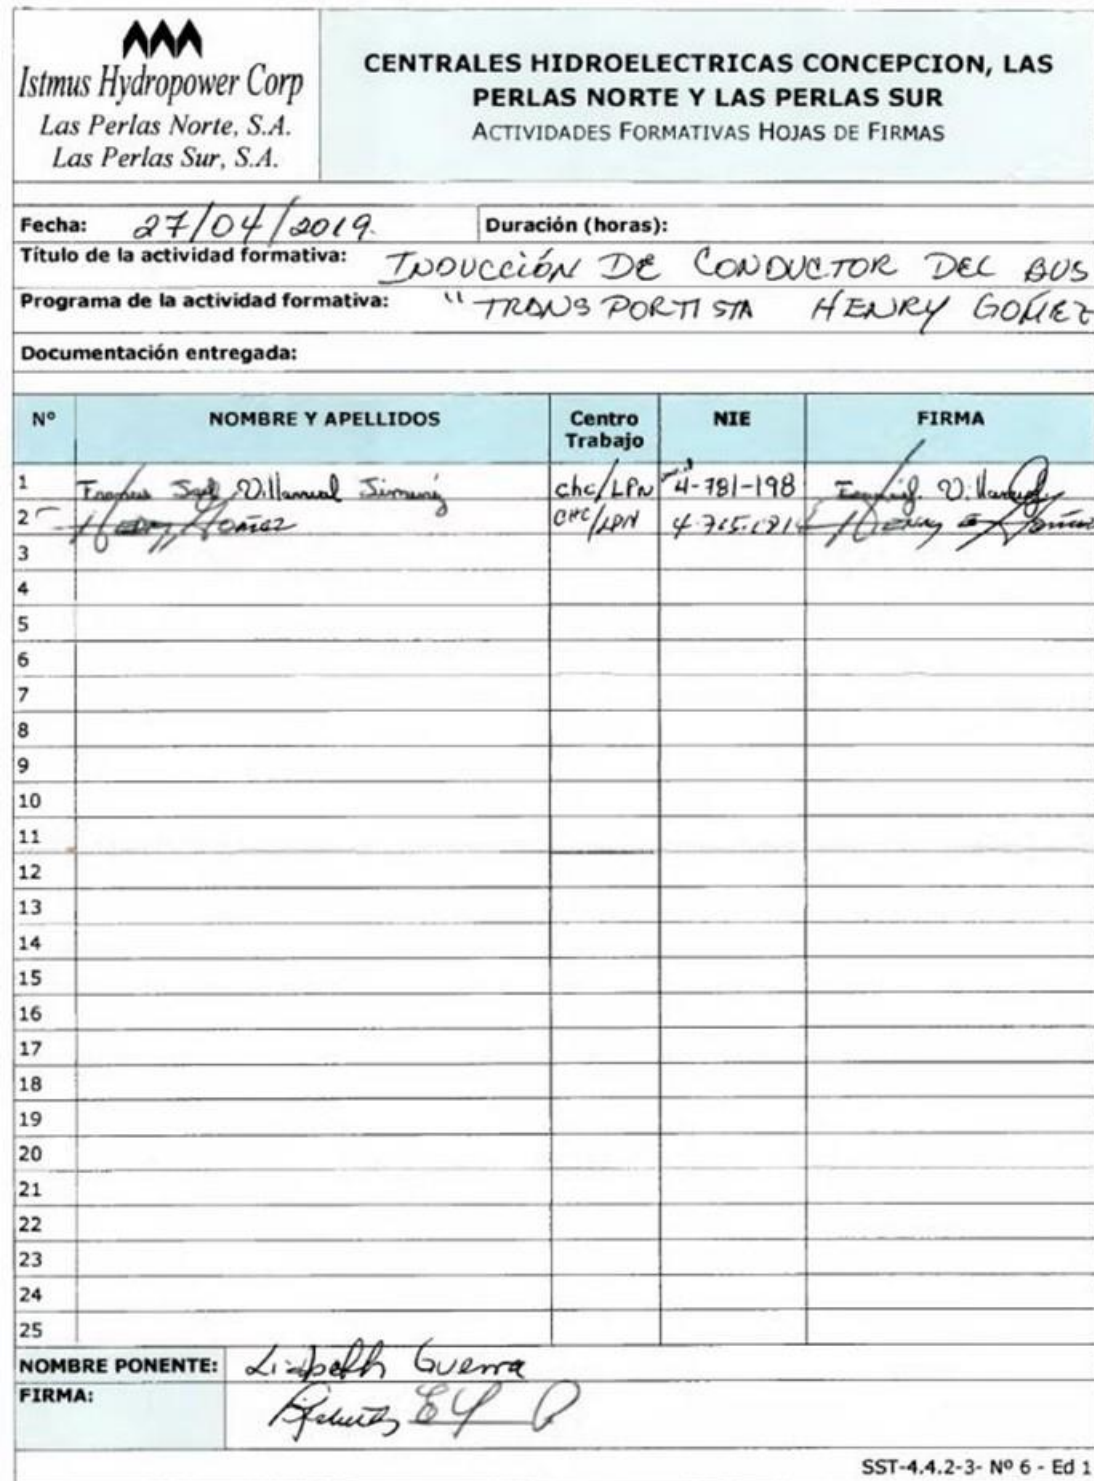 Istmus Hydropower Corp
Las Perlas Norte, S.A.
Las Perlas Sur, S.A.
CENTRALES HIDROELECTRICAS CONCEPCION, LAS
PERLAS NORTE Y LAS PERLAS SUR
ACTIVIDADES FORMATIVAS HOJAS DE FIRMAS
Fecha: 27/04/2019. Duración (horas):
Título de la actividad formativa: INDUCCIÓN DE CONDUCTOR DEL BUS
Programa de la actividad formativa: "TRANSPORTISTA HENRY GOMEZ
Documentación entregada:
Nº NOMBRE Y APELLIDOS Centro Trabajo NIE FIRMA
1 Villarreal chc/LPN 4-781-198
2 Henry Goméz CHC/LPN Henry
3
4
5
6
7
8
9
10
11
12
13
14
15
16
17
18
19
20
21
22
23
24
25
NOMBRE PONENTE: Lizbeth Guerra
FIRMA:
SST-4.4.2-3- Nº 6 - Ed 1